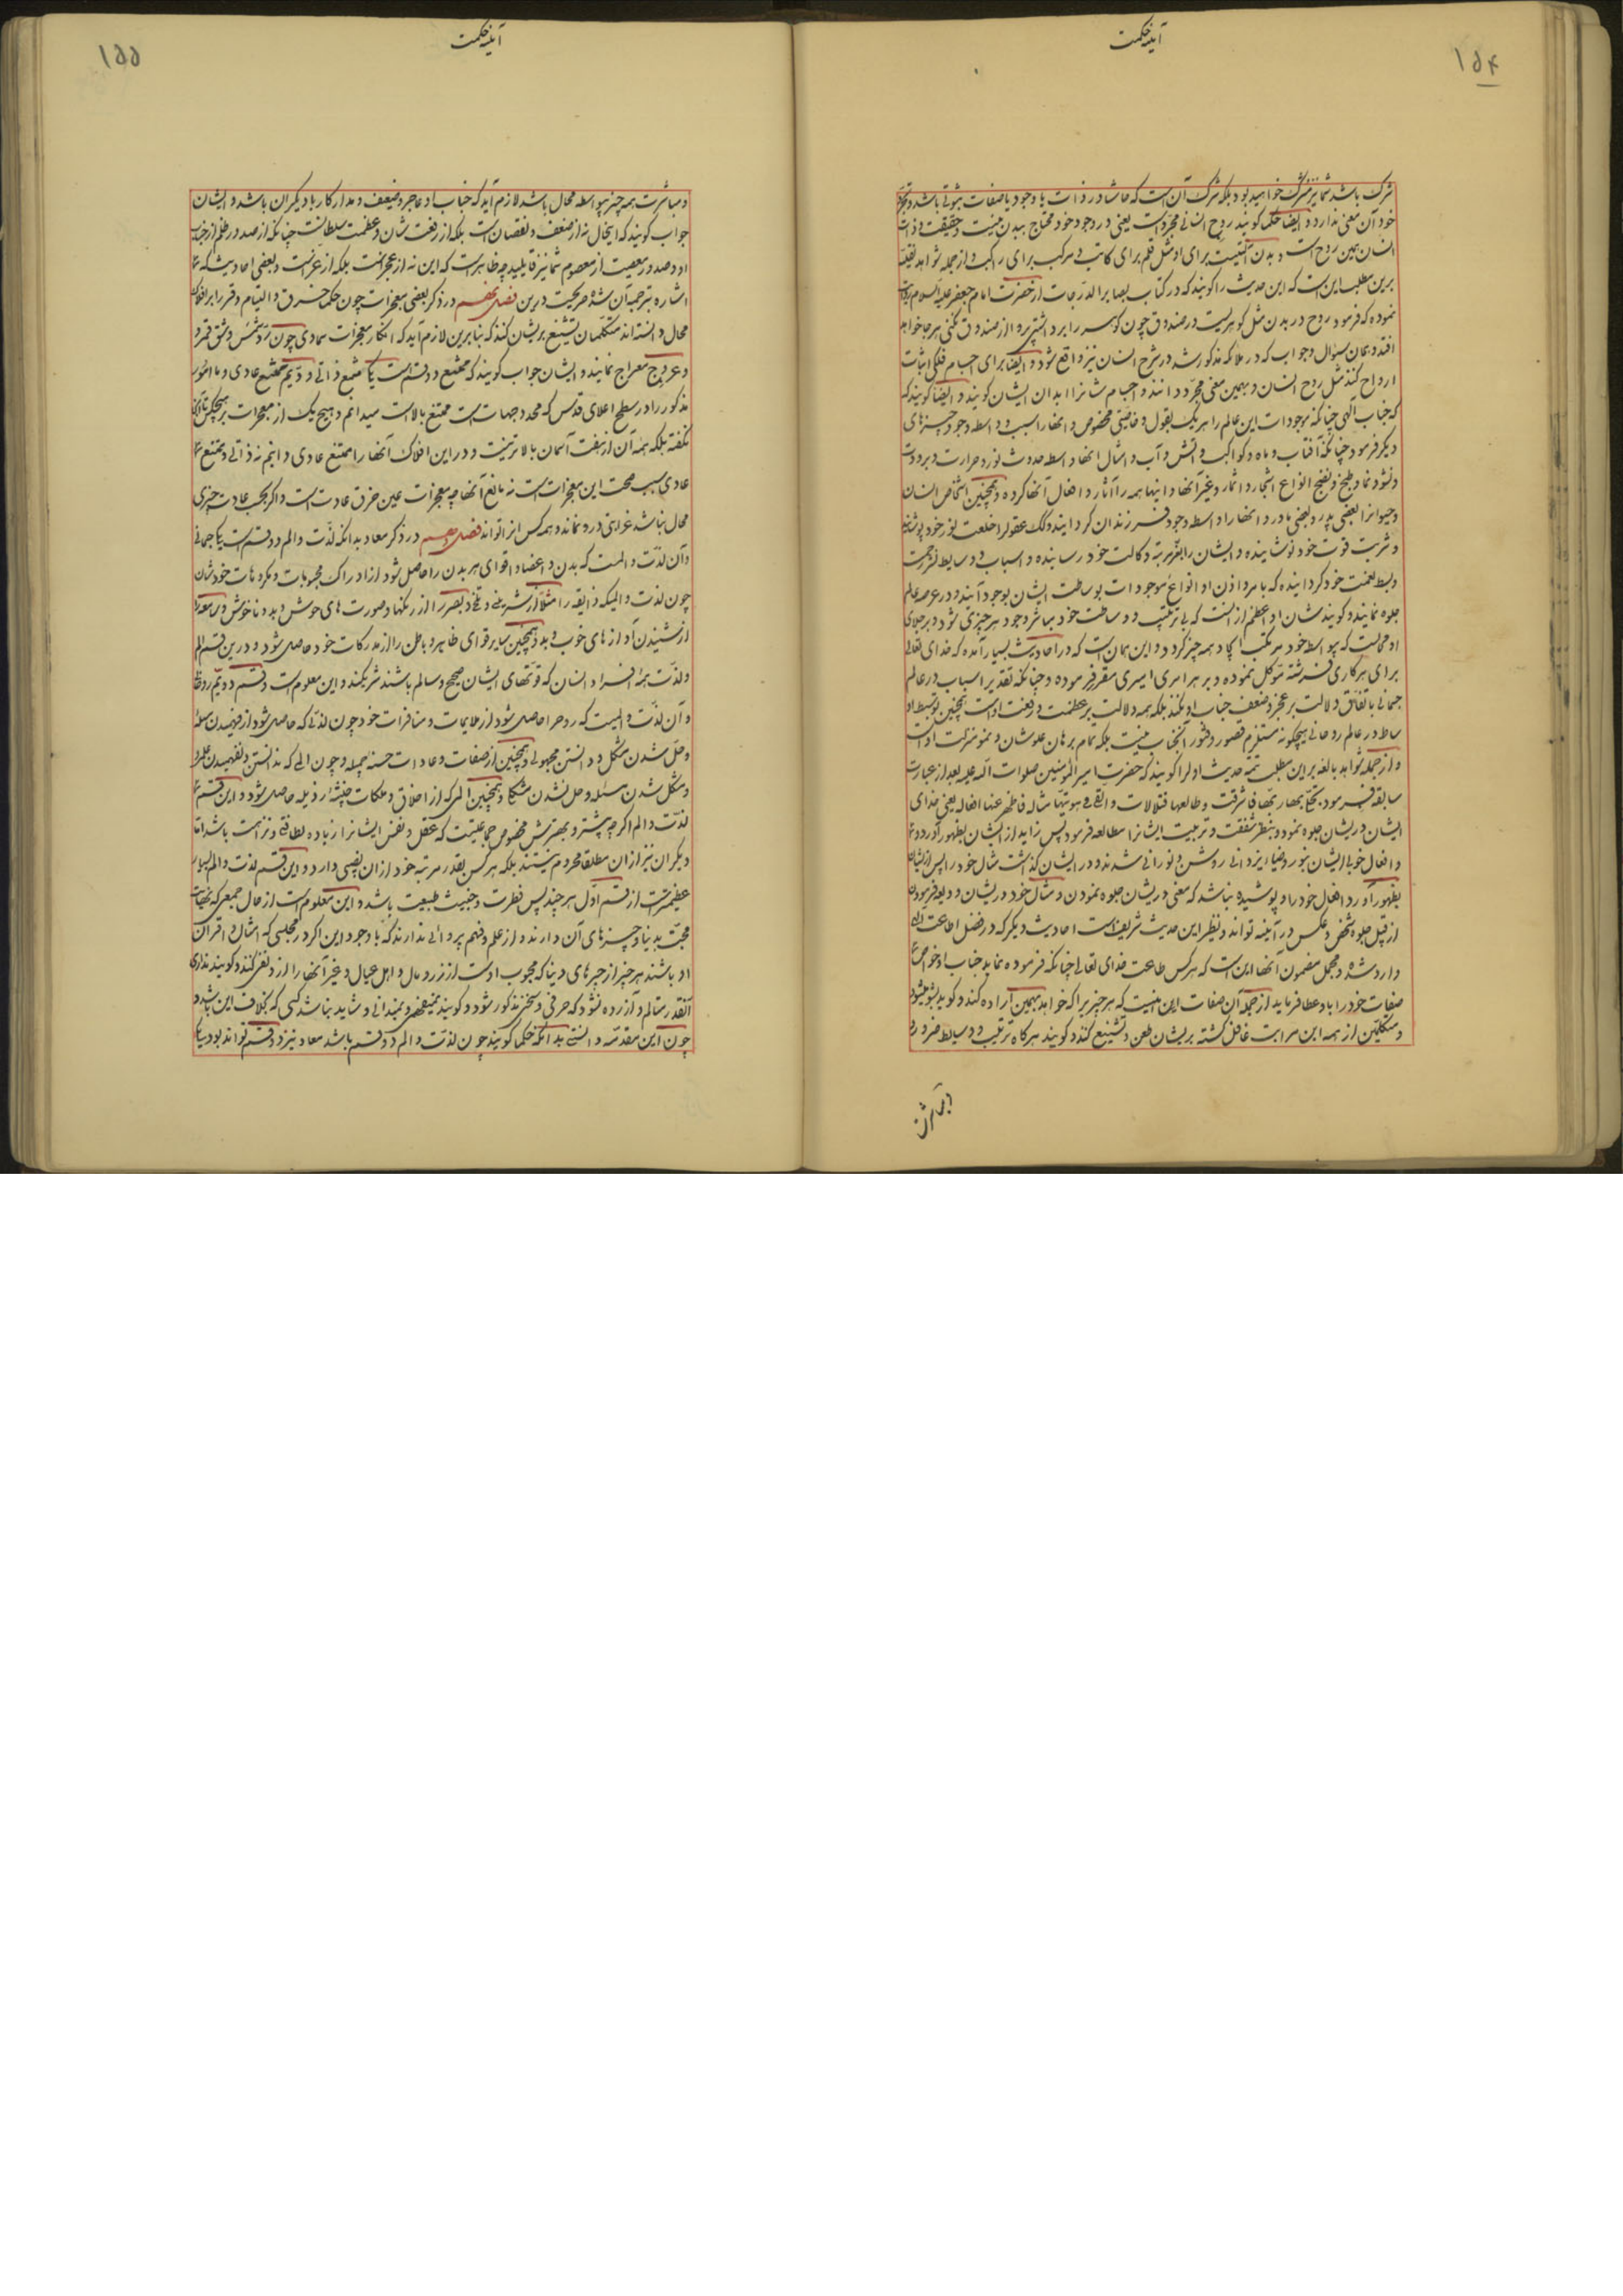 آینه حکمت
۱۵۴
شرک باشد شما نیز مشرک خواهید بود بلکه شرک آن است که حاشا در ذات یا وجود یا صفات ثبوتی باشد و تجرّد
خود آن معنی ندارد و ایضا حکما گویند روح انسانی مجرّد است یعنی در وجود خود محتاج ببدن نیست و حقیقت و ذات
انسان همین روح است و بدن آلتیست برای او مثل قلم برای کاتب و مرکب برای راکب و از جمله شواهد نقلیّه
برین مطلب این است که این حدیث را گویند که در کتاب بصایر الدرجات از حضرت امام جعفر علیه السلام روایت
نموده که فرمود روح در بدن مثل گوهریست در صندوق چون گوهر را برداشتی پروا از صندوق نکنی هر جا خواهد
افتد و همان سؤال و جواب که در ملائکه مذکور شد در شرح انسان نیز واقع شود و ایضا برای اجسام فلکی اثبات
ارواح کنند مثل روح انسان و بهمین معنی مجرّد دانند و اجسام شانرا ابدان ایشان گویند و ایضا گویند که
که جناب آلهی چنانکه موجودات این عالم را هر یک بقول و خاصیتی مخصوص و آنها را سبب و واسطه وجود چیزهای
دیگر فرمود چنانکه آفتاب و ماه و کواکب و آتش و آب و امثال آنها واسطه حدوث نور و حرارت و برودت
و نشو و نما و طبخ و نضج انواع اشجار و اثمار و غیر آنها و اینها همه را آثار و افعال آنها کرده و همچنین اشخاص انسان
و حیوانرا بعضی پدر و بعضی مادر و آنها را واسطه وجود فرزندان گردانیده و لک عقول را خلعت نور خود پوشانیده
و شربت قوت خود نوشانیده و ایشان را بقرب مرتبه وکالت خود رسانیده و اسباب و وسایط نشر رحمت
و بسط نعمت خود گردانیده که بامر و اذن او انواع موجودات بوساطت ایشان بوجود آیند و در عرصه عالم
جلوه نمایند و گویند شان او اعظم از انست که بی ترتیب و وساطت خود مباشر وجود هر چیزی شود و بر جلال
او محالست که بیواسطه خود مرتکب ایجاد همه چیز گردد و این همان است که در احادیث بسیار آمده که خدای تعالی
برای هر کاری فرشته موکل نموده و بر هر امری امیری مقرر فرموده و چنانکه تقدیر اسباب در عالم
جسمانی باتفاق دلالت بر عجز و ضعف جناب او نکند بلکه همه دلالت بر عظمت و رفعت اوست همچنین توسیط او
ساط در عالم روحانی هیچگونه مستلزم قصور و فتور آنجناب نیست بلکه تمام برهان علو شان و سمو منزلت اوست
و از جمله شواهد بالغه بر این مطلب تتمه حدیث اولرا گویند که حضرت امیرالمؤمنین صلوات الله علیه بعد از عبارت
سابقه فرمود تجلی بها ربّها فاشرقت و طالعها فتلألأت و القی فی هویتها مثاله فاظهر عنها افعاله یعنی خدای
ایشان در ایشان جلوه نمود و بنظر شفقت و تربیت ایشانرا مطالعه فرمود پس زاید از ایشان بظهور آورد و
و افعال خوبی ایشان بنور و ضیاء ایزدانی روشن و نورانی شدند و در ایشان گذاشت مثال خود را پس از ایشان
بظهور آورد افعال خود را و پوشیده نباشد که معنی در ایشان جلوه نمودن و مثال خود در ایشان ودیعه فرمودن
از قبیل جلوه شخص و عکس در آئینه تواند و نظیر این حدیث شریف است احادیث دیگر که در فضل اطاعت الله
وارد شده و مجمل مضمون آنها این است که هر کس طاعت خدای تعالی چنانکه فرموده نماید جناب او خواص
صفات خود را باو عطا فرماید از جمله آن صفات این نیست که هر چیز را که خواهد بهمین اراده کند و گوید بشو میشود
و متکلمین از همه این مراتب غافل گشته بریشان طعن و تشنیع کنند و گویند هرگاه ترتیب و وسایط ضرور
و مباشرت
آینه حکمت
۱۵۵
و مباشرت همه چیز بیواسطه محال باشد لازم آید که جناب او عاجز و ضعیف و مدار کار با دیگران باشد و ایشان
جواب گویند که اینحال نه از ضعف و نقصان است بلکه از رفعت شان و عظمت سلطانت چنانکه از صدور ظلم از جناب
او و صدور معصیت از معصوم شما نیز قایلید چه ظاهر است که این نه از عجز انست بلکه از عزّ انست و بعضی احادیث که
اشاره بترجمه آن شد صریحست درین فصل نهم در ذکر بعضی معجزات چون حکما خرق و التیام و قمر را بر افلاک
محال دانسته اند متکلمان تشنیع بریشان کنند که بنابرین لازم آید که انکار معجزات سماوی چون ردّ شمس و شق قمر و
و عروج معراج نمایند و ایشان جواب گویند که ممتنع دو قسم است یکی ممتنع ذاتی و دویّم ممتنع عادی و ما امور
مذکور را در سطح اعلای فلک اطلس که محدد جهات است ممتنع بالذات میدانیم و هیچ یک از معجزات بر هیچکس تا آنجا
نگفته بلکه همه آن از هفت آسمان بالاتر نیست و در این افلاک آنها را ممتنع عادی دانیم نه ذاتی و ممتنع
عادی سبب صحت این معجزات است نه مانع آنها چه معجزات عین خرق عادت است و اگر بحسب عادت چیزی
محال نباشد غرابتی درو نماند و همه کس انرا تواند فصل دهم در ذکر معاد بدانکه لذّت و الم دو قسم است یکی جسمانی
و آن لذّت و المست که بدن و اعضا و اقوای هر بدن را حاصل شود از ادراک محبوبات و مکروهات خودشان
چون لذت و المیکه ذایقه را مثلاً از شیرینی و تلخی و بصر را از رنگها و صورت های خوش و بد و ناخوش و سامعه را
از شنیدن آواز های خوب و بد و همچنین سایر قوای ظاهر و باطن را از مدرکات خود حاصل شود و درین قسم الم
و لذّت همه افراد انسان که قوتهای ایشان صحیح و سالم باشند شریکند و این معلوم است و قسم دویّم روحانی
و آن لذّت و المیست که روحرا حاصل شود از ملایمات و منافرات خود چون لذتی که حاصل شود از فهمیدن مسئله
و حل شدن مشکل و دانستن مجهولی و همچنین از صفات و عادات حسنه جمیله و چون المی که ندانستن و نفهمیدن علم و
و مشکل شدن مسئله و حل نشدن مشکل و همچنین المی که از اخلاق و ملکات خبیثه رذیله حاصل شود و این قسم
لذّت و الم اگر چه بیشتر و بهترش مخصوص جماعتیست که عقل و نفس ایشانرا زیاده لطافتی و نزاهت باشد اما
دیگران نیز از ان مطلقا محروم نیستند بلکه هر کس بقدر مرتبه خود از ان نصیبی دارد و این قسم لذت و الم بسیار
عظیمتر است از قسم اوّل هر چند پس فطرت و خبیث طبیعت باشد و این معلوم است از حال جمعی که نهایت
محبّت بدنیا و چیزهای آن دارند و از علم و فهم پروائی ندارند که با وجود این اگر در مجلسی که امثال و اقران
او باشند هر چیز از چیزهای دنیا که محبوب اوست از زر و مال و اهل عیال و غیر آنها را از و نفی کنند و گویند نداری
آنقدر متألم و آزرده نشود که حرفی و سخنی مذکور شود و گویند نمیفهمی و نمیدانی و شاید نباشد کسی که بخلاف این باشد و
چون این مقدّمه دانستی بدانکه حکما گویند چون لذّت و الم دو قسم باشد معاد نیز دو قسم تواند بود یکی